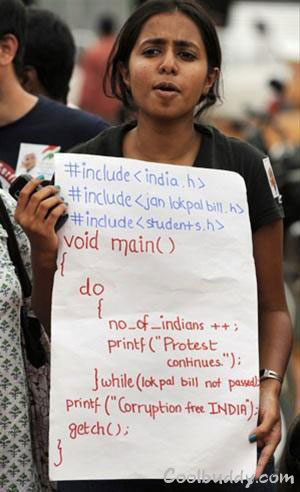 #include<india.h>
#include<jan lokpal bill.h>
#include<students.h>
void main()
{
do
{
no_of_indians ++;
printf("Protest
continues.");
}while(lokpal bill not passed);
printf("Corruption free INDIA");
getch();
}
Coolbuddy.com